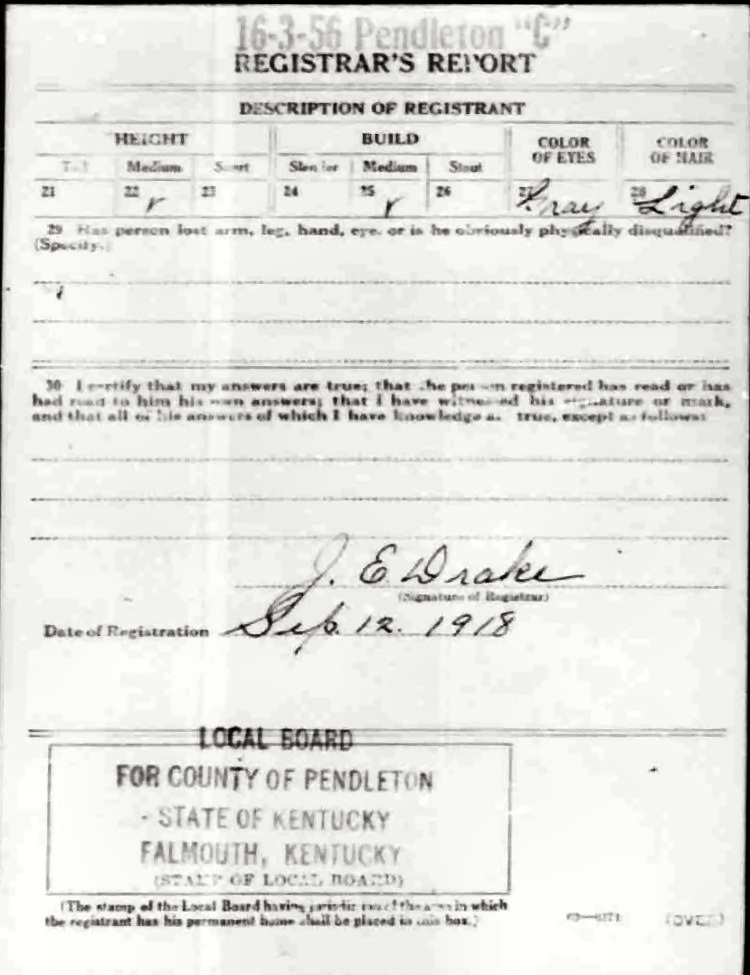 16-3-56 Pendleton "C"
REGISTRAR'S REPORT
DESCRIPTION OF REGISTRANT
HEIGHT BUILD COLOR OF EYES COLOR OF HAIR
Tall Medium Short Slender Medium Stout
21 22 ✓ 23 24 25 ✓ 26 27 Gray 28 Light
29 Has person lost arm, leg, hand, eye, or is he obviously physically disqualified?
(Specify.)
30 I certify that my answers are true; that the person registered has read or has
had read to him his own answers; that I have witnessed his signature or mark,
and that all of his answers of which I have knowledge are true, except as follows:
J. E Drake
(Signature of Registrar)
Date of Registration Sep. 12. 1918
LOCAL BOARD
FOR COUNTY OF PENDLETON
STATE OF KENTUCKY
FALMOUTH, KENTUCKY
(STAMP OF LOCAL BOARD)
(The stamp of the Local Board having jurisdiction of the area in which
the registrant has his permanent home shall be placed in this box.)
(OVER)